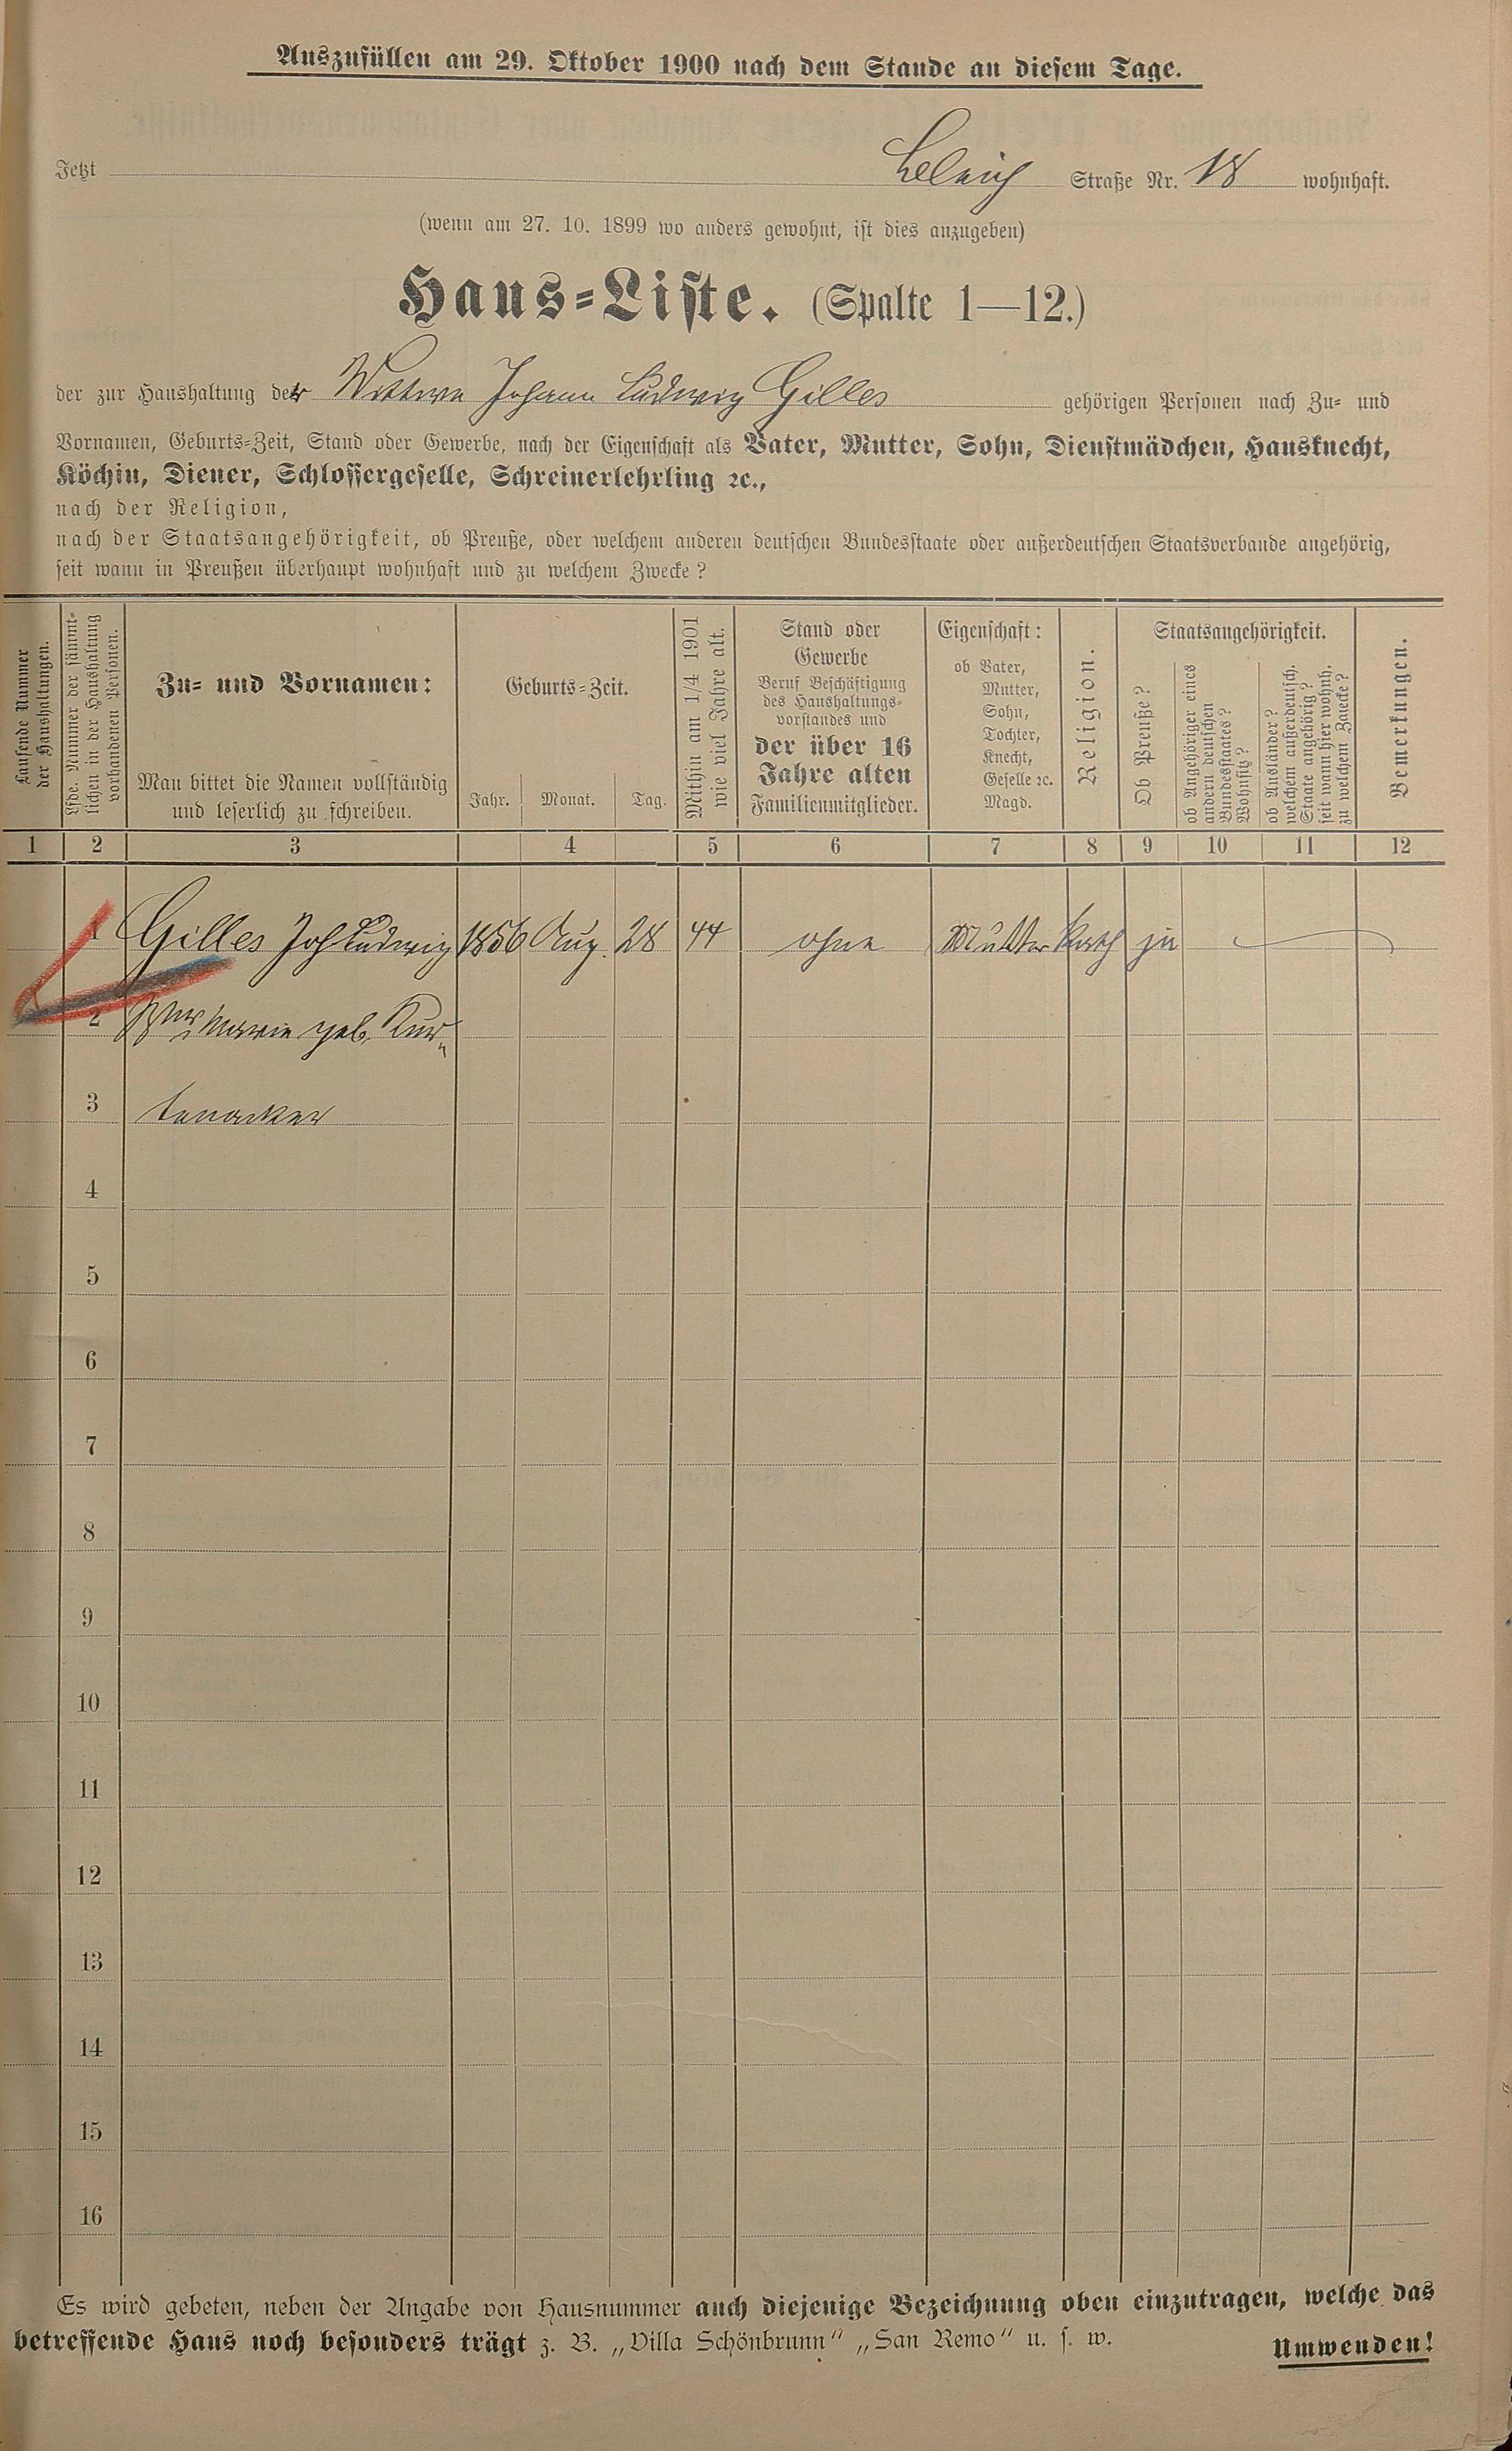 Auszufüllen am 29. Oktober 1900 nach dem Stande an diesem Tage.
Jetzt Straße Nr. 18 wohnhaft.
(wenn am 27. 10. 1899 wo anders gewohnt, ist dies anzugeben)
Haus-Liste. (Spalte 1—12.)
der zur Haushaltung der Wittwe Johann Ludwig Gilles gehörigen Personen nach Zu- und
Vornamen, Geburts-Zeit, Stand oder Gewerbe, nach der Eigenschaft als Vater, Mutter, Sohn, Dienstmädchen, Hausknecht,
Köchin, Diener, Schlossergeselle, Schreinerlehrling ꝛc.,
nach der Religion,
nach der Staatsangehörigkeit, ob Preuße, oder welchem anderen deutschen Bundesstaate oder außerdeutschen Staatsverbande angehörig,
seit wann in Preußen überhaupt wohnhaft und zu welchem Zwecke?
Laufende Nummer
der Haushaltungen.
Lfde. Nummer der sämmt-
lichen in der Haushaltung
vorhandenen Personen.
Zu- und Vornamen:
Man bittet die Namen vollständig
und leserlich zu schreiben.
Geburts-Zeit.
Jahr. Monat. Tag.
Mithin am 1/4 1901
wie viel Jahre alt.
Stand oder
Gewerbe
Beruf Beschäftigung
des Haushaltungs-
vorstandes und
der über 16
Jahre alten
Familienmitglieder.
Eigenschaft:
ob Vater,
Mutter,
Sohn,
Tochter,
Knecht,
Geselle ꝛc.
Magd.
Religion.
Staatsangehörigkeit.
Ob Preuße?
ob Angehöriger eines
andern deutschen
Bundesstaates?
Wohnsitz?
ob Ausländer?
welchem außerdeutsch.
Staate angehörig?
seit wann hier wohnh.
zu welchem Zwecke?
Bemerkungen.
1 2 3 4 5 6 7 8 9 10 11 12
1 Gilles Joh Ludwig 1856 Aug. 28 44 ohne Mutter Kath ja
2 Wwe Marie geb. Kur-
3 tenacker
4
5
6
7
8
9
10
11
12
13
14
15
16
Es wird gebeten, neben der Angabe von Hausnummer auch diejenige Bezeichnung oben einzutragen, welche das
betreffende Haus noch besonders trägt z. B. „Villa Schönbrunn" „San Remo" u. s. w.
Umwenden!